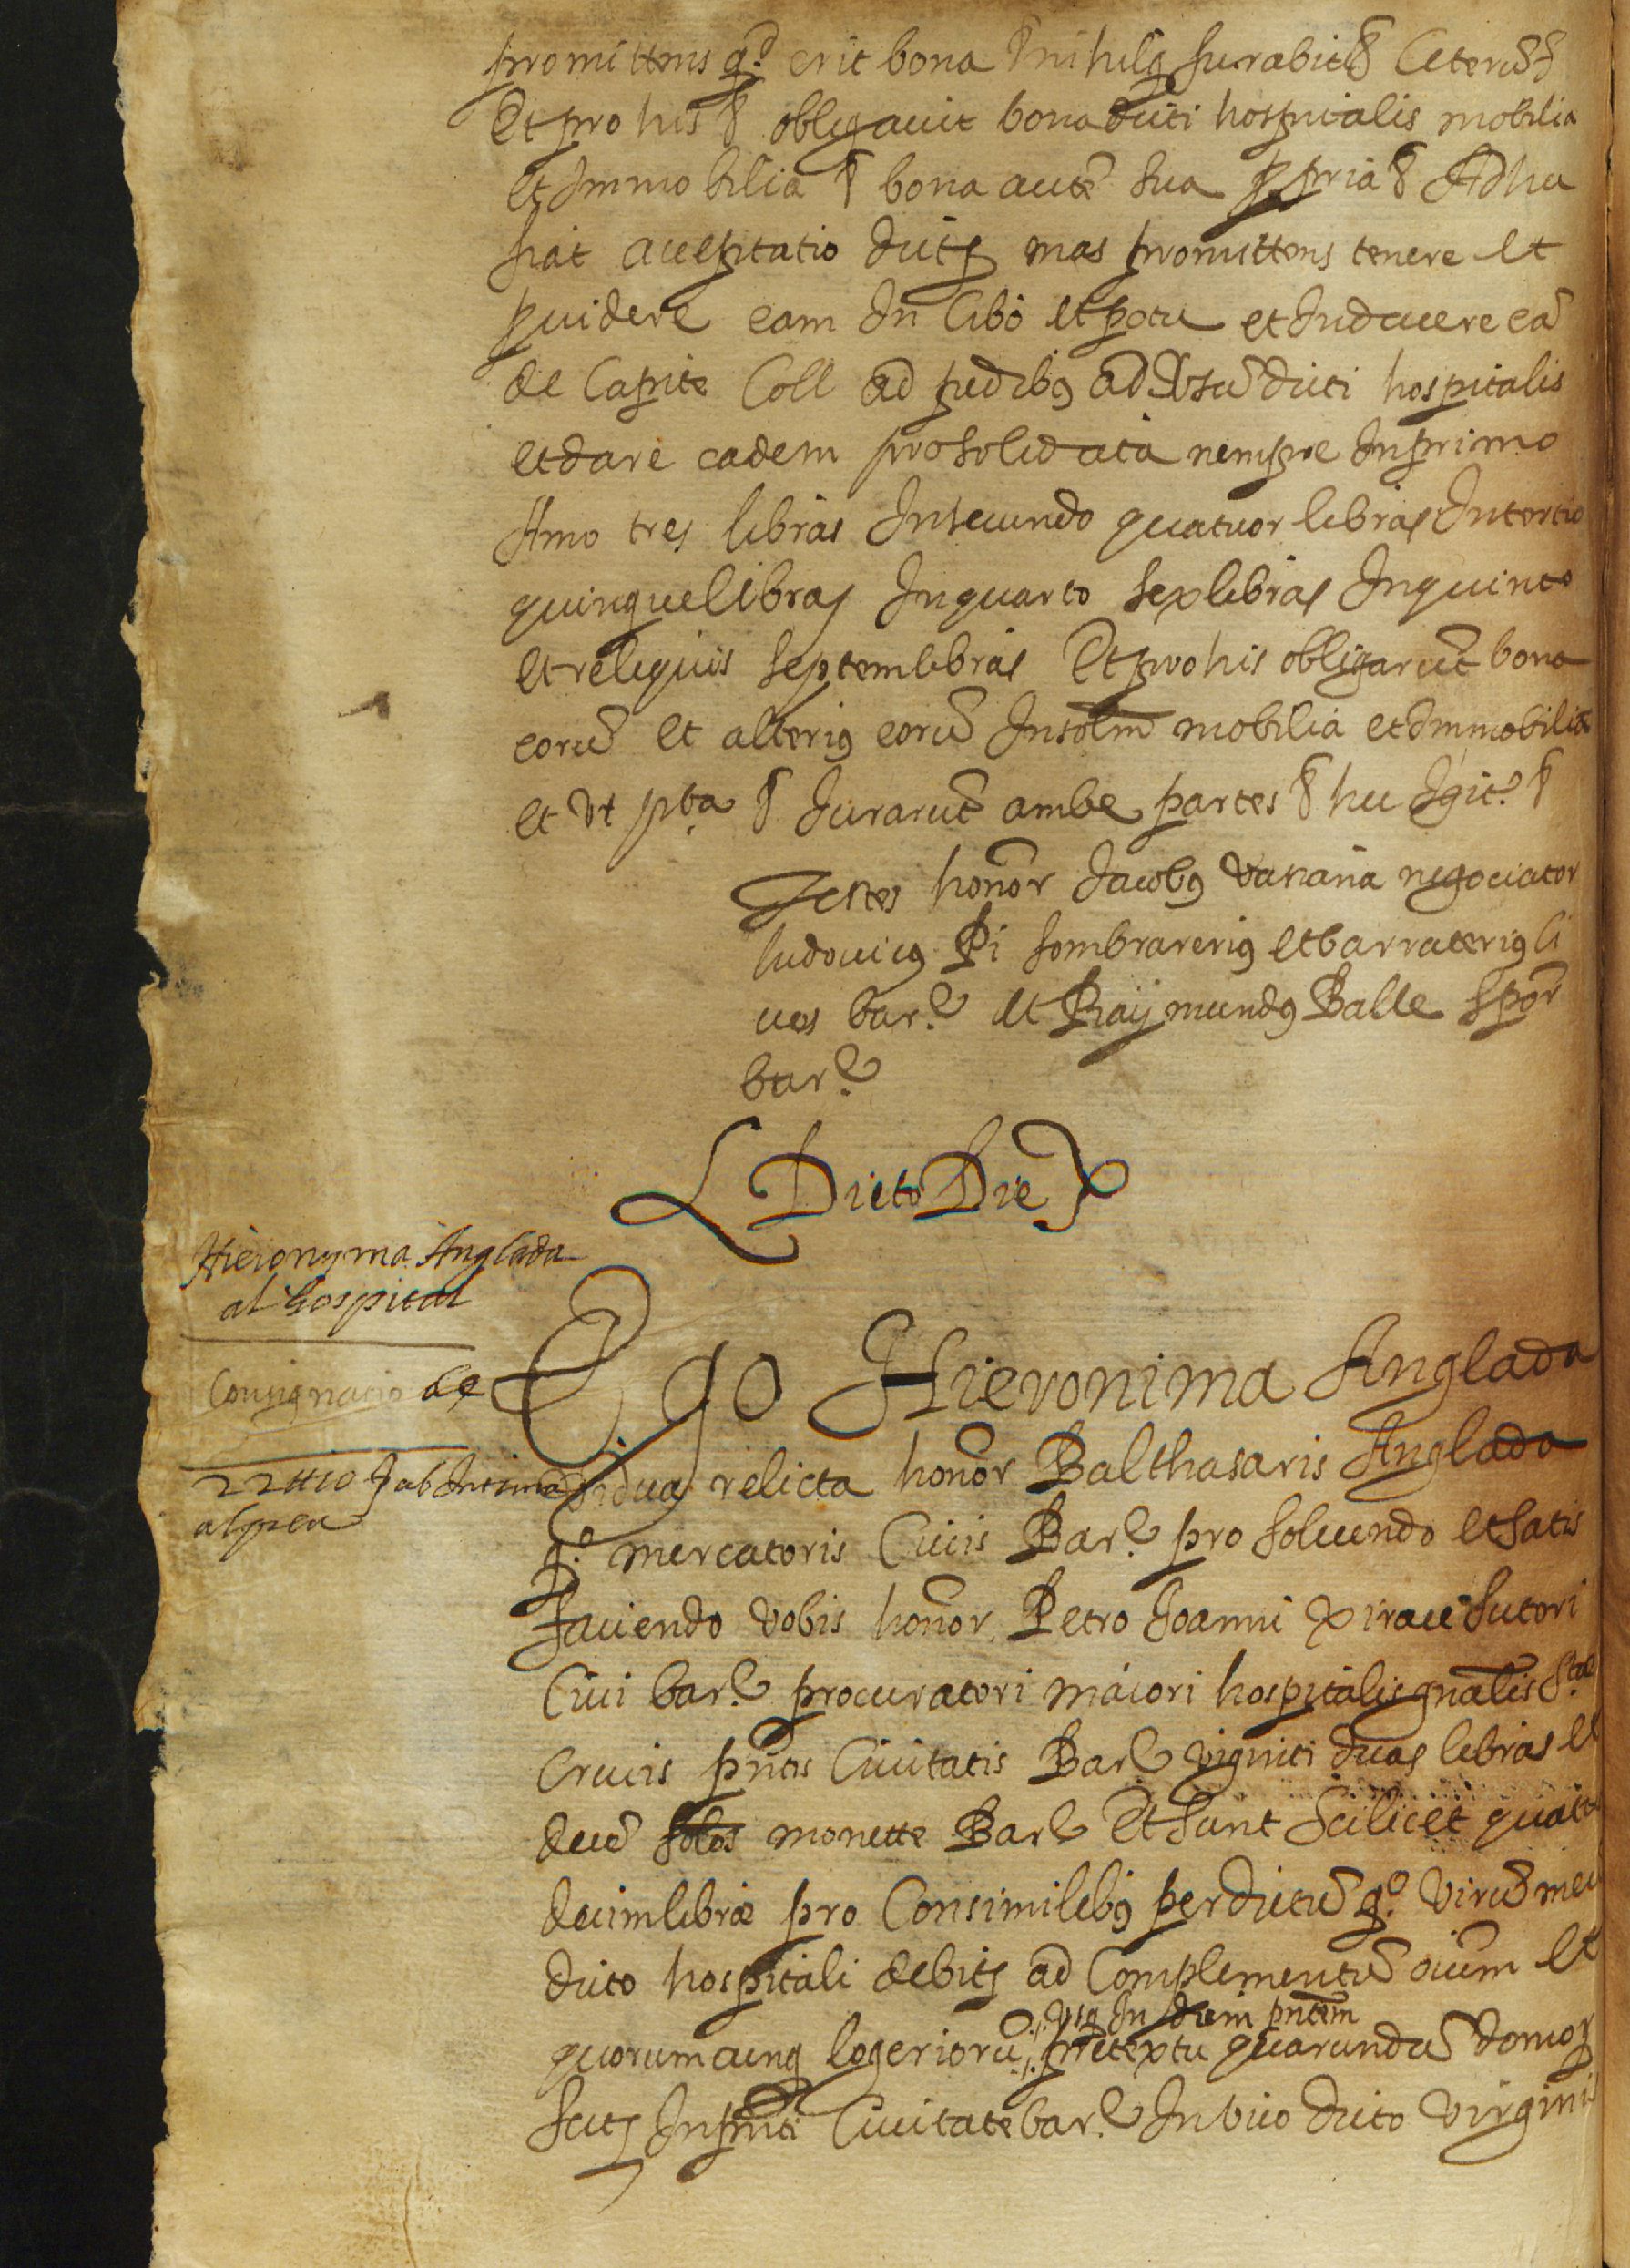 promittens q.d erit bona & nihil q furabit & Ceterũ
Et pro his & obligavit bona dicti hospitalis mobilia
et Immobilia & bona autẽ sua ppria & Ad hec
fiat acceptatio dict mas promittens tenere et
pvidere eam In Cibo et potu et Induere eã
de Capite Coll ad pedibq ad Vsũ dicti hospitalis
et dare eadem pro solidata nempe In primo
Anno tres libras In secundo quatuor libras In tertio
quinque libras In quarto sex libras In quinto
et reliquis septem libras Et pro his obligarũt bona
eorũ et alteriq eorũ Insolm mobilia et Immobilia
et vt pba & Jurarũt ambe partes & hec Igit.r &
Testes honõr Jacobq negociator
ludovicq Pi sombrareriq et barrateriq Ci
ves bar.e et Raÿmundq Balle spõr
bar.e
Dicto Die
Hieronyma Anglada
al hospital
Consignacio de
22 tt 10 s
Ego Hieronima Anglada
vidua relicta honõr Balthasaris Anglada
q.o mercatoris Civis Bar.e pro solvendo et satis
faciendo vobis honõr Petro Joanni Xirau Sutori
Civi bar.e procuratori maiori hospitalis gnalis S.tae
Crucis pntis Civitatis Bar.e viginti duas libras et
decẽ solos monette Bar.e Et sunt Scilicet quatu
decim libre pro Consimilibq per dictũ q.o virũ meũ
dicto hospitali debit ad Complementũ oium et
vsq In diem pntem
quorumcunq logeriorũ pretextu quarundã domoR
scit In pnti Civitate bar.e In vico dicto virginis